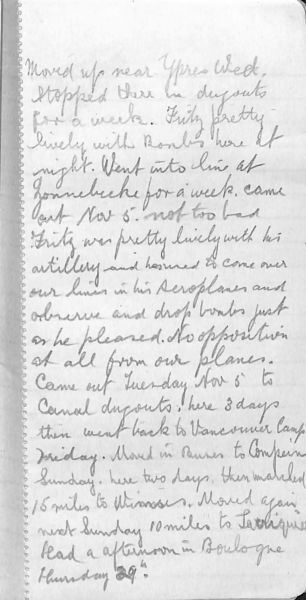 Moved up near Ypres Wed.
Stopped there in dugouts
for a week. Fritz pretty
lively with Bombs here at
night. Went into line at
Zonnebecke for a week. came
out Nov 5. not too bad
Fritz was pretty lively with his
artillery and seemed to come over
our lines in his aeroplanes and
observe and drop bombs just
as he pleased. No opposition
at all from our planes.
Came out Tuesday Nov 5 to
Canal dugouts. here 3 days
then went back to Vancouver Camp
Friday. Moved in Buses to
Sunday. here two days, then marched
15 miles to Moved again
next Sunday 10 miles to
Had a afternoon in Boulogne
Thursday 29"